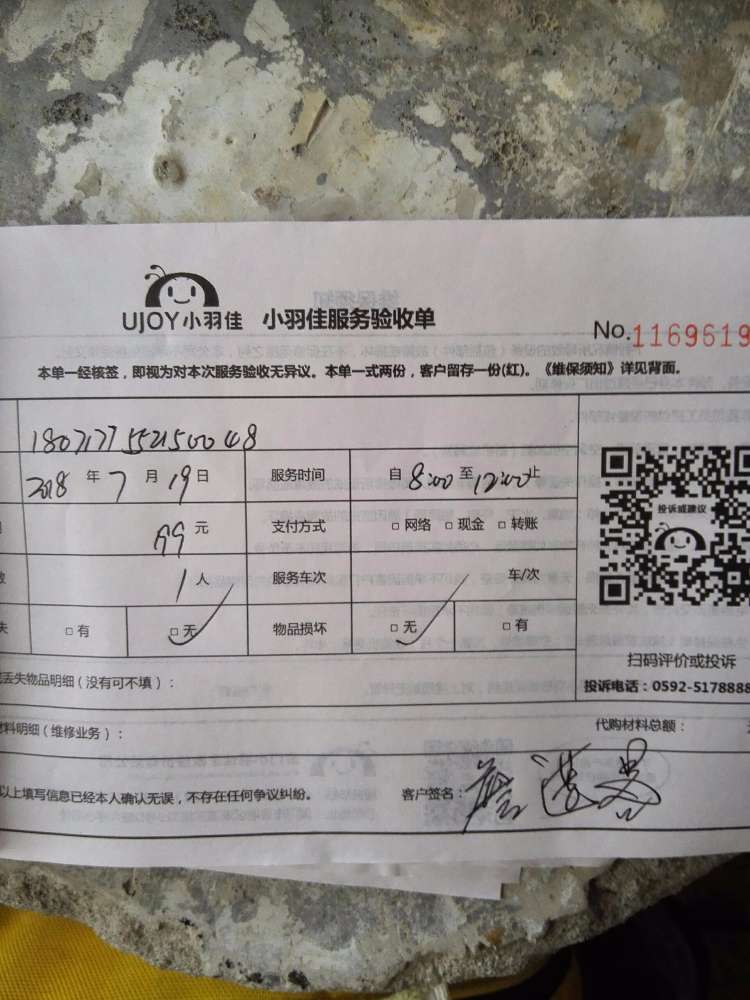 UJOY小羽佳 小羽佳服务验收单 No.1169619
本单一经核签，即视为对本次服务验收无异议。本单一式两份，客户留存一份(红)。《维保须知》详见背面。
2018 年 7 月 19 日 服务时间 自 8:00 至 12:00 止
99 元 支付方式 □ 网络 □ 现金 □ 转账
投诉或建议
1 人 服务车次 车/次
□ 有 □ 无 物品损坏 □ 无 □ 有
扫码评价或投诉
丢失物品明细（没有可不填）：
投诉电话：0592-5178888
材料明细（维修业务）：
代购材料总额：
以上填写信息已经本人确认无误，不存在任何争议纠纷。 客户签名：